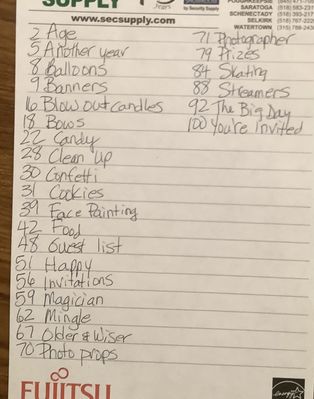 SUPPLY
Years
by Security Supply
www.secsupply.com
POUGHKEEPSIE (845) 471-
SARATOGA (518) 583-
SCHENECTADY (518) 393-
SELKIRK (518) 767-
WATERTOWN (315) 788-
2 Age
5 Another year
8 Balloons
9 Banners
16 Blow out candles
18 Bows
22 Candy
28 Clean up
30 Confetti
31 Cookies
39 Face Painting
42 Food
48 Guest list
51 Happy
56 Invitations
59 Magician
62 Mingle
67 Older & Wiser
70 Photo props
71 Photographer
79 Prizes
84 Skating
88 Streamers
92 The Big Day
100 You're Invited
FUJITSU
energy